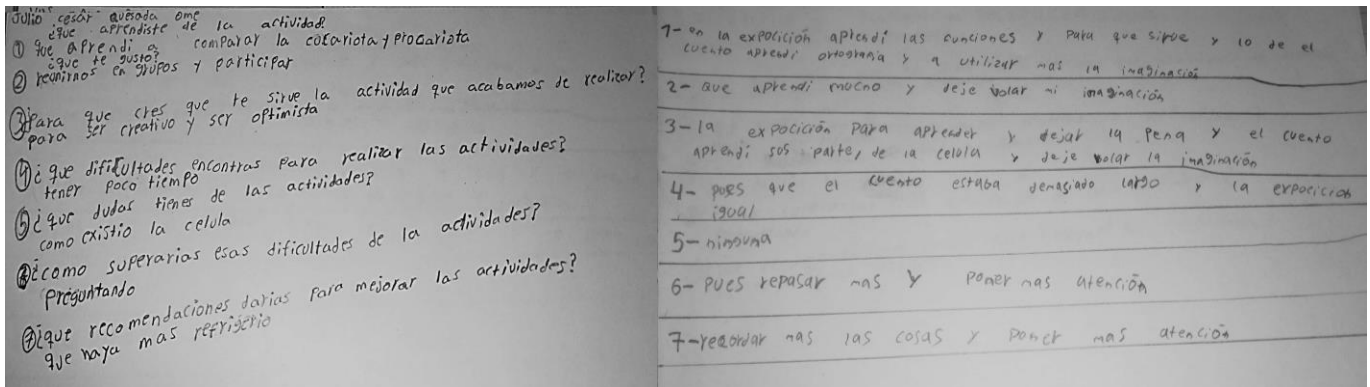 Julio cesár quesada ome
¿que aprendiste de la actividad?
① que aprendi a comparar la eocariota y procariota
¿que te gusto?
② reunirnos en grupos y participar
③ ¿para que cres que te sirve la actividad que acabamos de realizar?
para ser creativo y ser optimista
④ ¿que dificultades encontras para realizar las actividades?
tener poco tiempo
⑤ ¿que dudas tienes de las actividades?
como existio la celula
⑥ ¿como superarias esas dificultades de la actividades?
preguntando
⑦ ¿que recomendaciones darias para mejorar las actividades?
que haya mas refrigerio
1- en la expocición aprendí las cunciones y para que sirve y lo de el
cuento aprendi ortografia y a utilizar mas la imaginación
2- que aprendi mucho y deje volar mi imaginación
3- la expocición para aprender y dejar la pena y el cuento
aprendí sus parte, de la celula y deje volar la imaginación
4- pues que el cuento estaba demasiado largo y la expocición
igual
5- ninguna
6- pues repasar mas y poner mas atención
7- recordar mas las cosas y poner mas atención